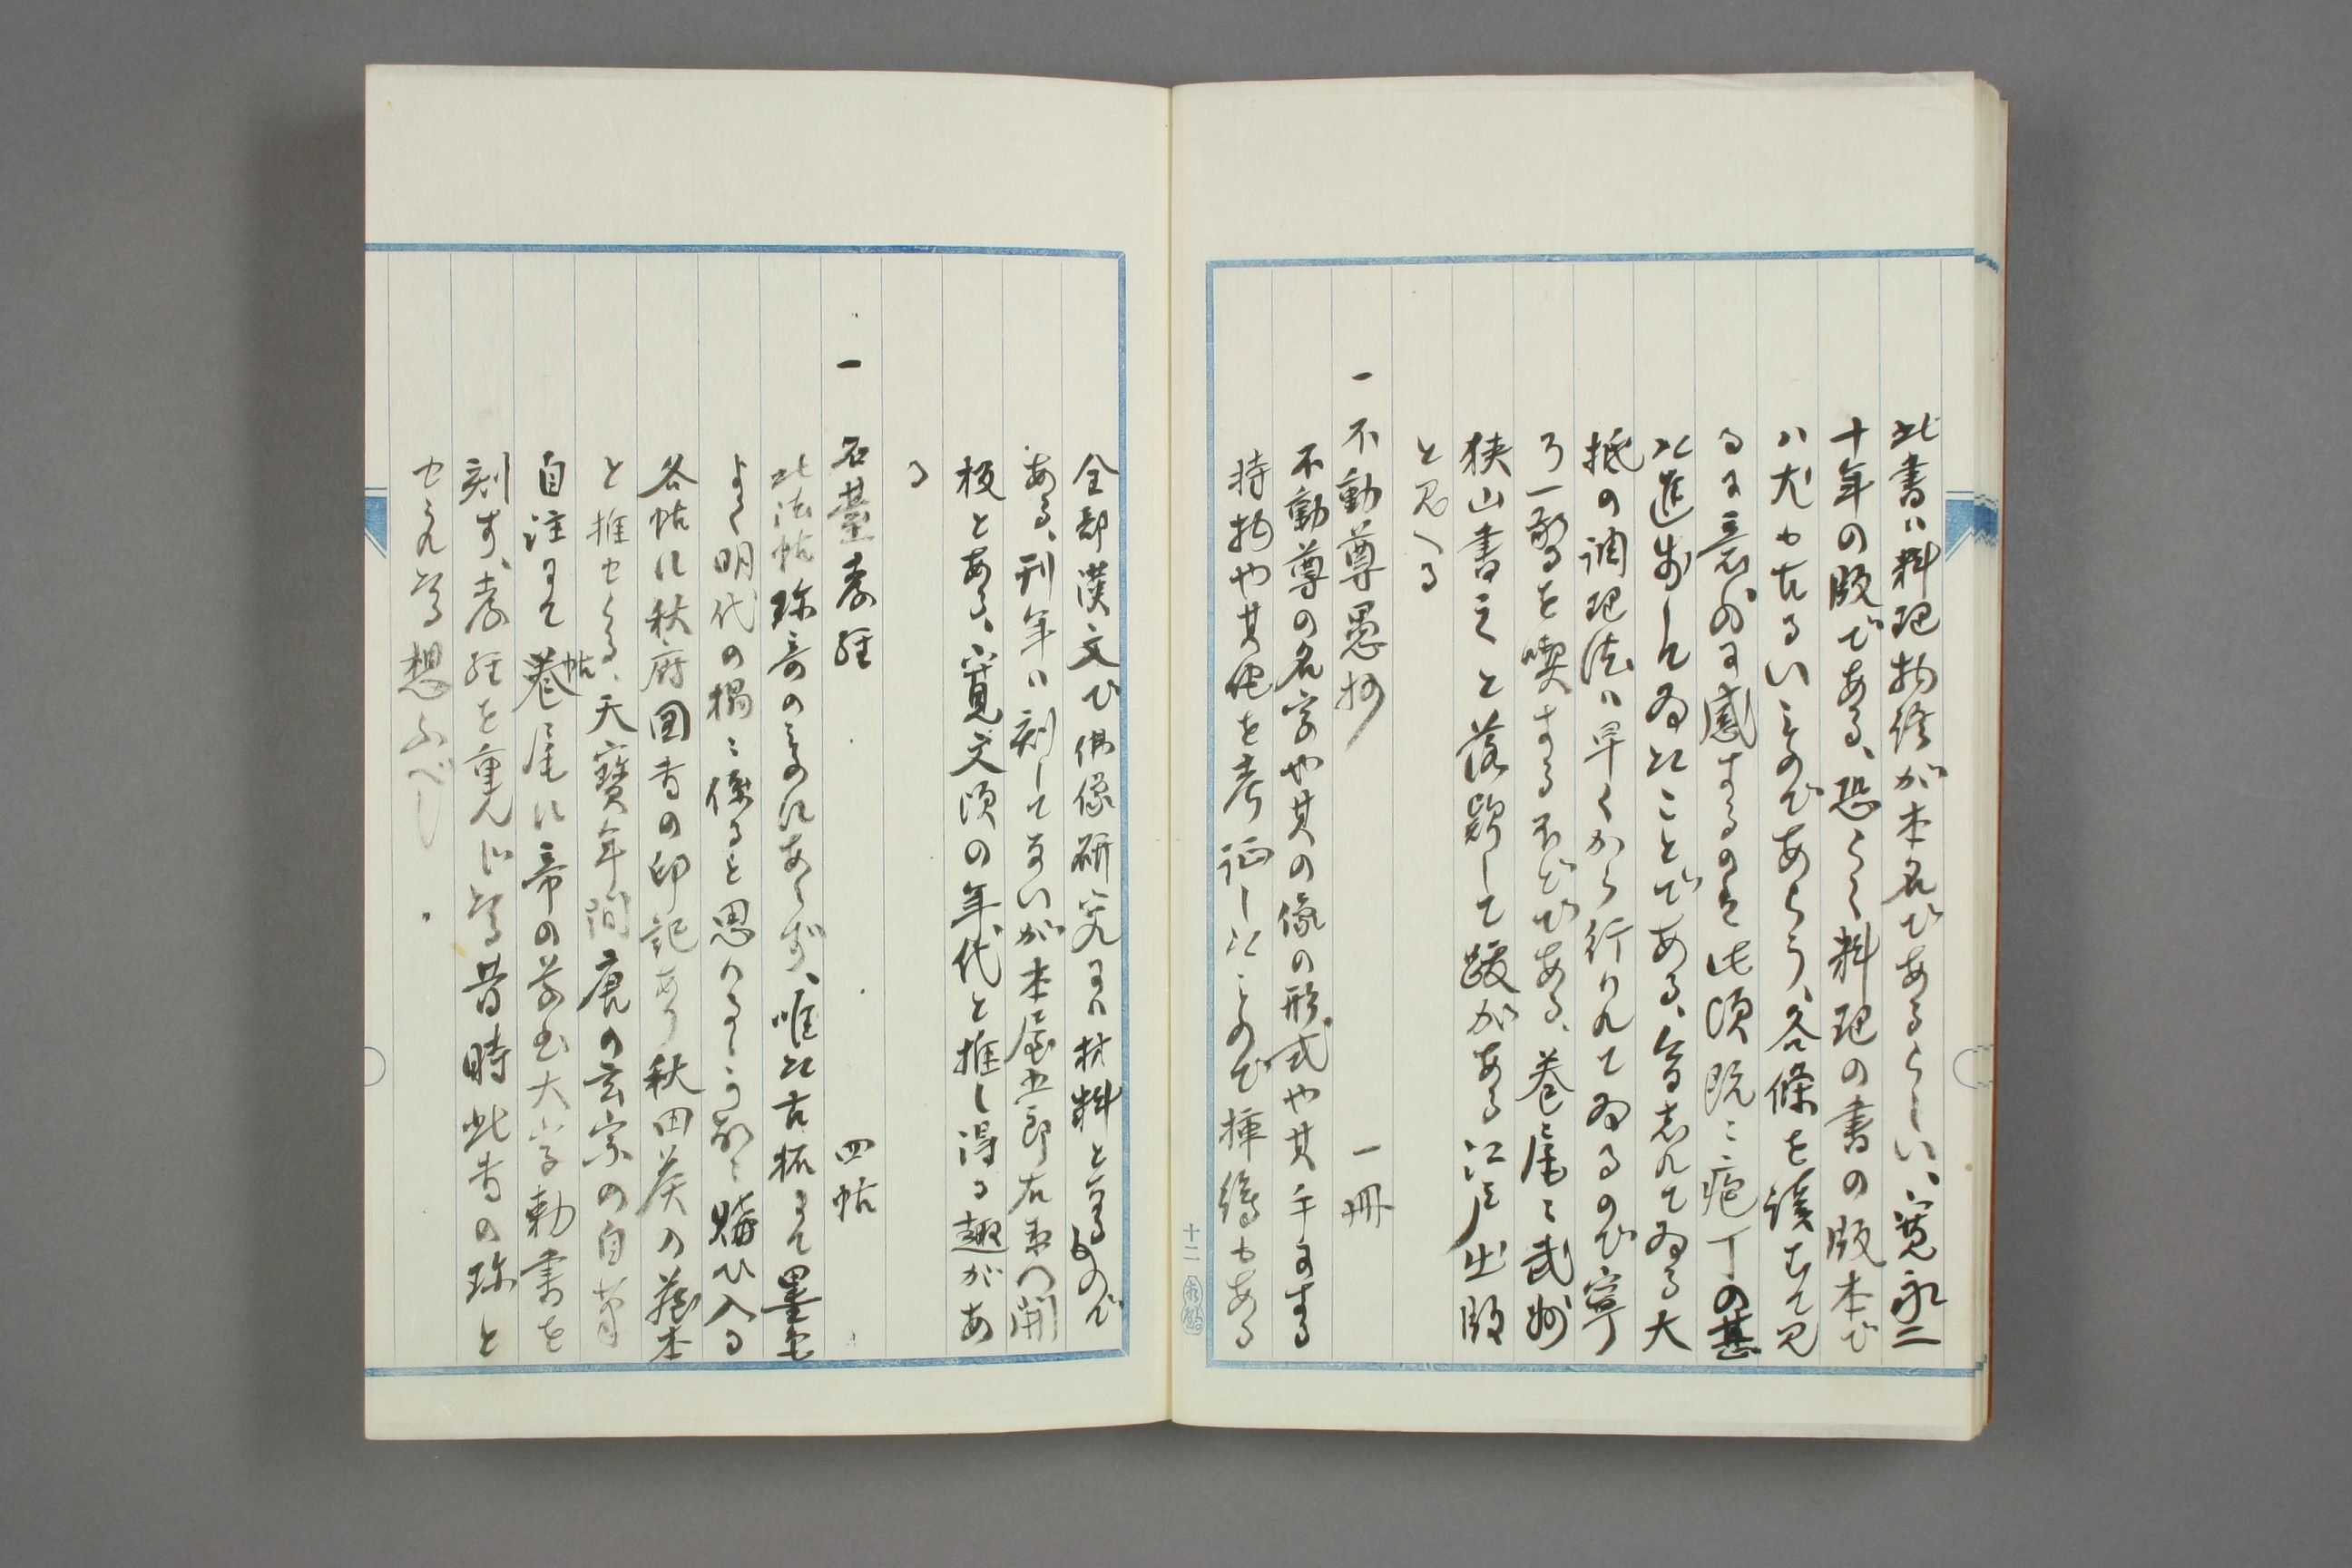 此書ハ料理物語が本名であるらしい、寛永二
十年の版である、恐らく料理の書の版本で
ハ尤も古るいものであらう、各條を讀むで見
るに意外に感するのは此頃既に庖丁の甚
た進歩して居たことである、今志れて居る大
抵の調理法ハ早くから行われて居るので寧
ろ一驚を喫する不どである、巻尾に武州
狭山書之と落款して跋がある江戸出版
と見へる
一 不動尊愚抄 一冊
不動尊の名字や其の像の形式や其手にする
持物や其他を考証したもので挿繪もある
十二
全部漢文で佛像研究にハ材料となるもので
ある、刊年ハ刻してないが本屋五郎右衛門開
板とある、寛文頃の年代と推し得る趣があ
る
一 石臺孝経 四帖
此法帖珍奇のものにあらず、唯た古拓にて墨色
よく明代の搨に係ると思わるゝ
各帖に秋府圖書の印記あり秋田侯の蔵本
と推せらる、天寶年間唐の玄宗の自筆
自注にて巻帖尾に帝の草書大字勅書を
刻す、孝経を重んじたる昔時此書の珍と
せられたる想ふべし